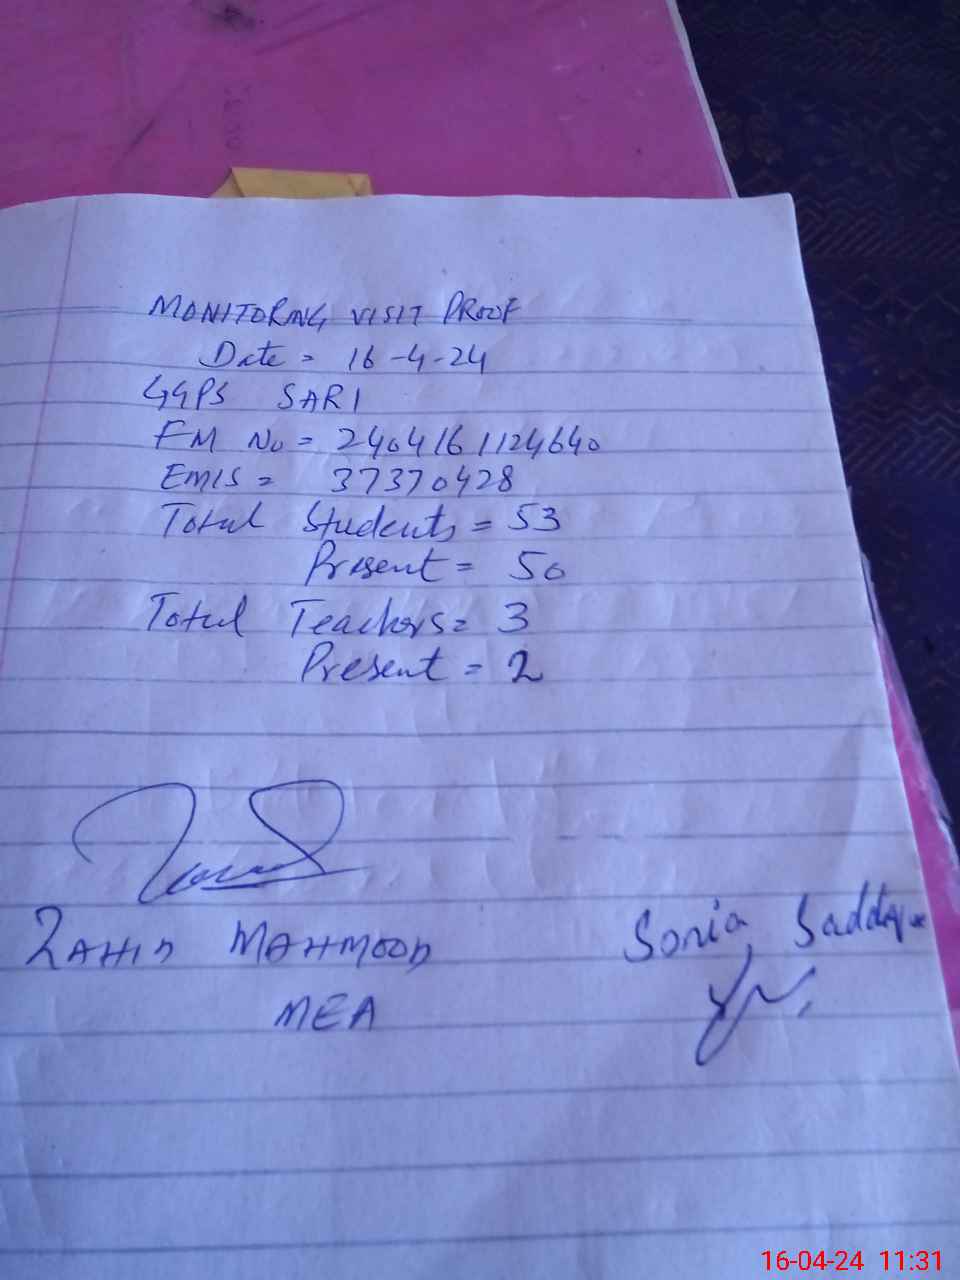 MONITORING VISIT PROOF
Date = 16-4-24
GGPS SARI
FM No = 2404161124640
EMIS = 37370428
Total Students = 53
Present = 50
Total Teachers = 3
Present = 2
ZAHID MAHMOOD
Sonia Saddique
MEA
16-04-24 11:31